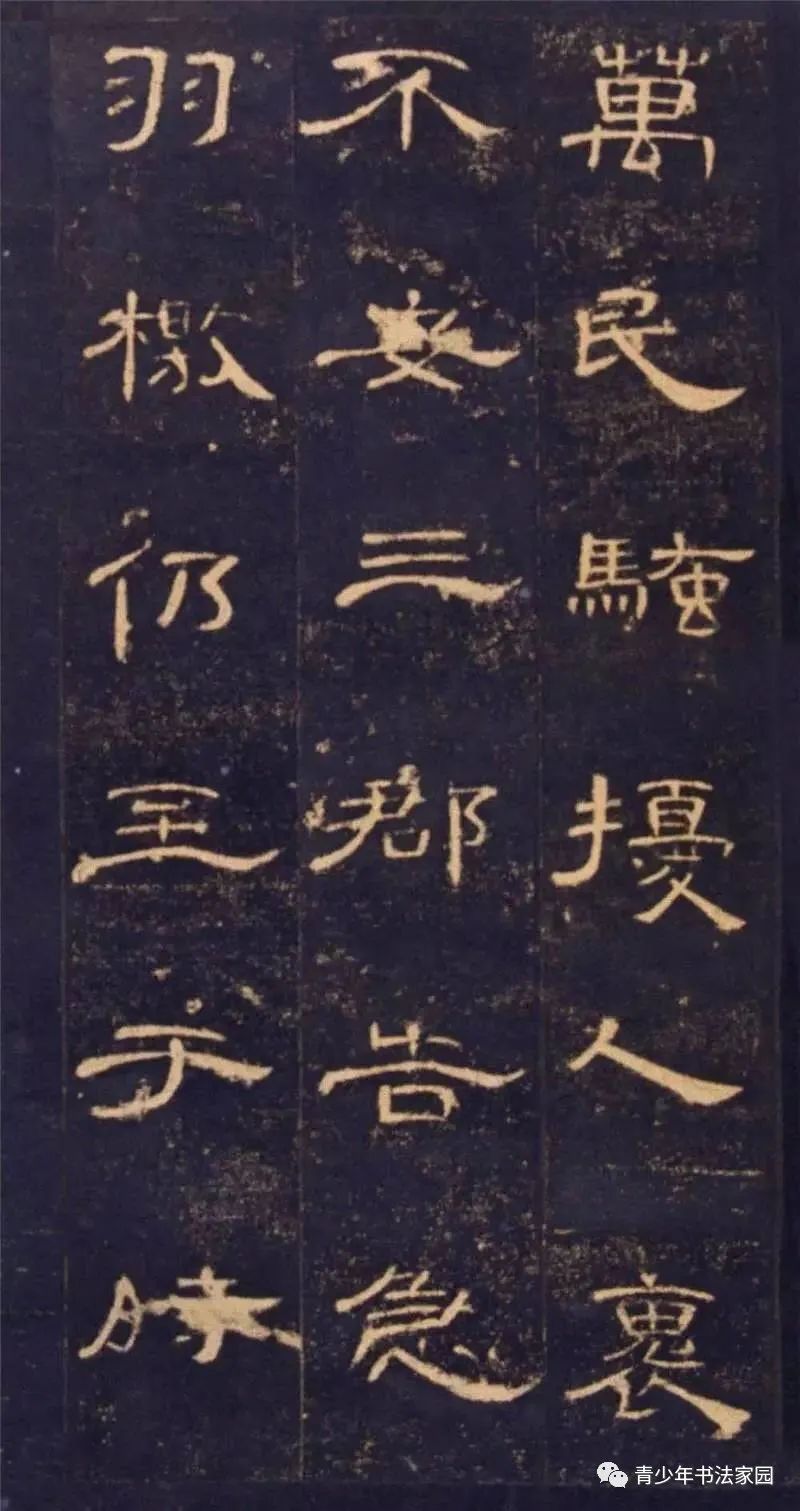 萬民騷擾人褱
不安三郡告急
羽檄仍至于時
青少年书法家园